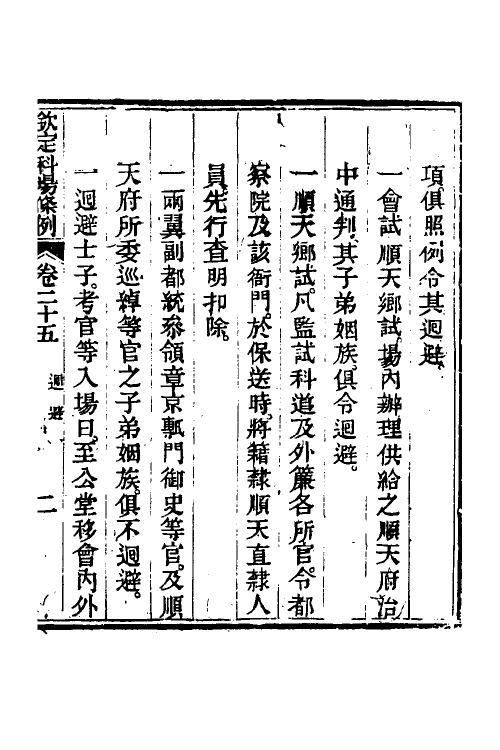 項俱照例令其迴避
一會試順天鄉試場內辦理供給之順天府治
中通判其子弟姻族俱令迴避。
一順天鄉試凡監試科道及外簾各所官。令都
察院及該衙門於保送時將籍隸順天直隸人
員先行查明扣除。
一兩翼副都統叅領章京甎門御史等官及順
天府所委巡綽等官之子弟姻族俱不迴避。
一迴避士子。考官等入場日。至公堂移會內外
欽定科場條例 卷二十五 迴避 二